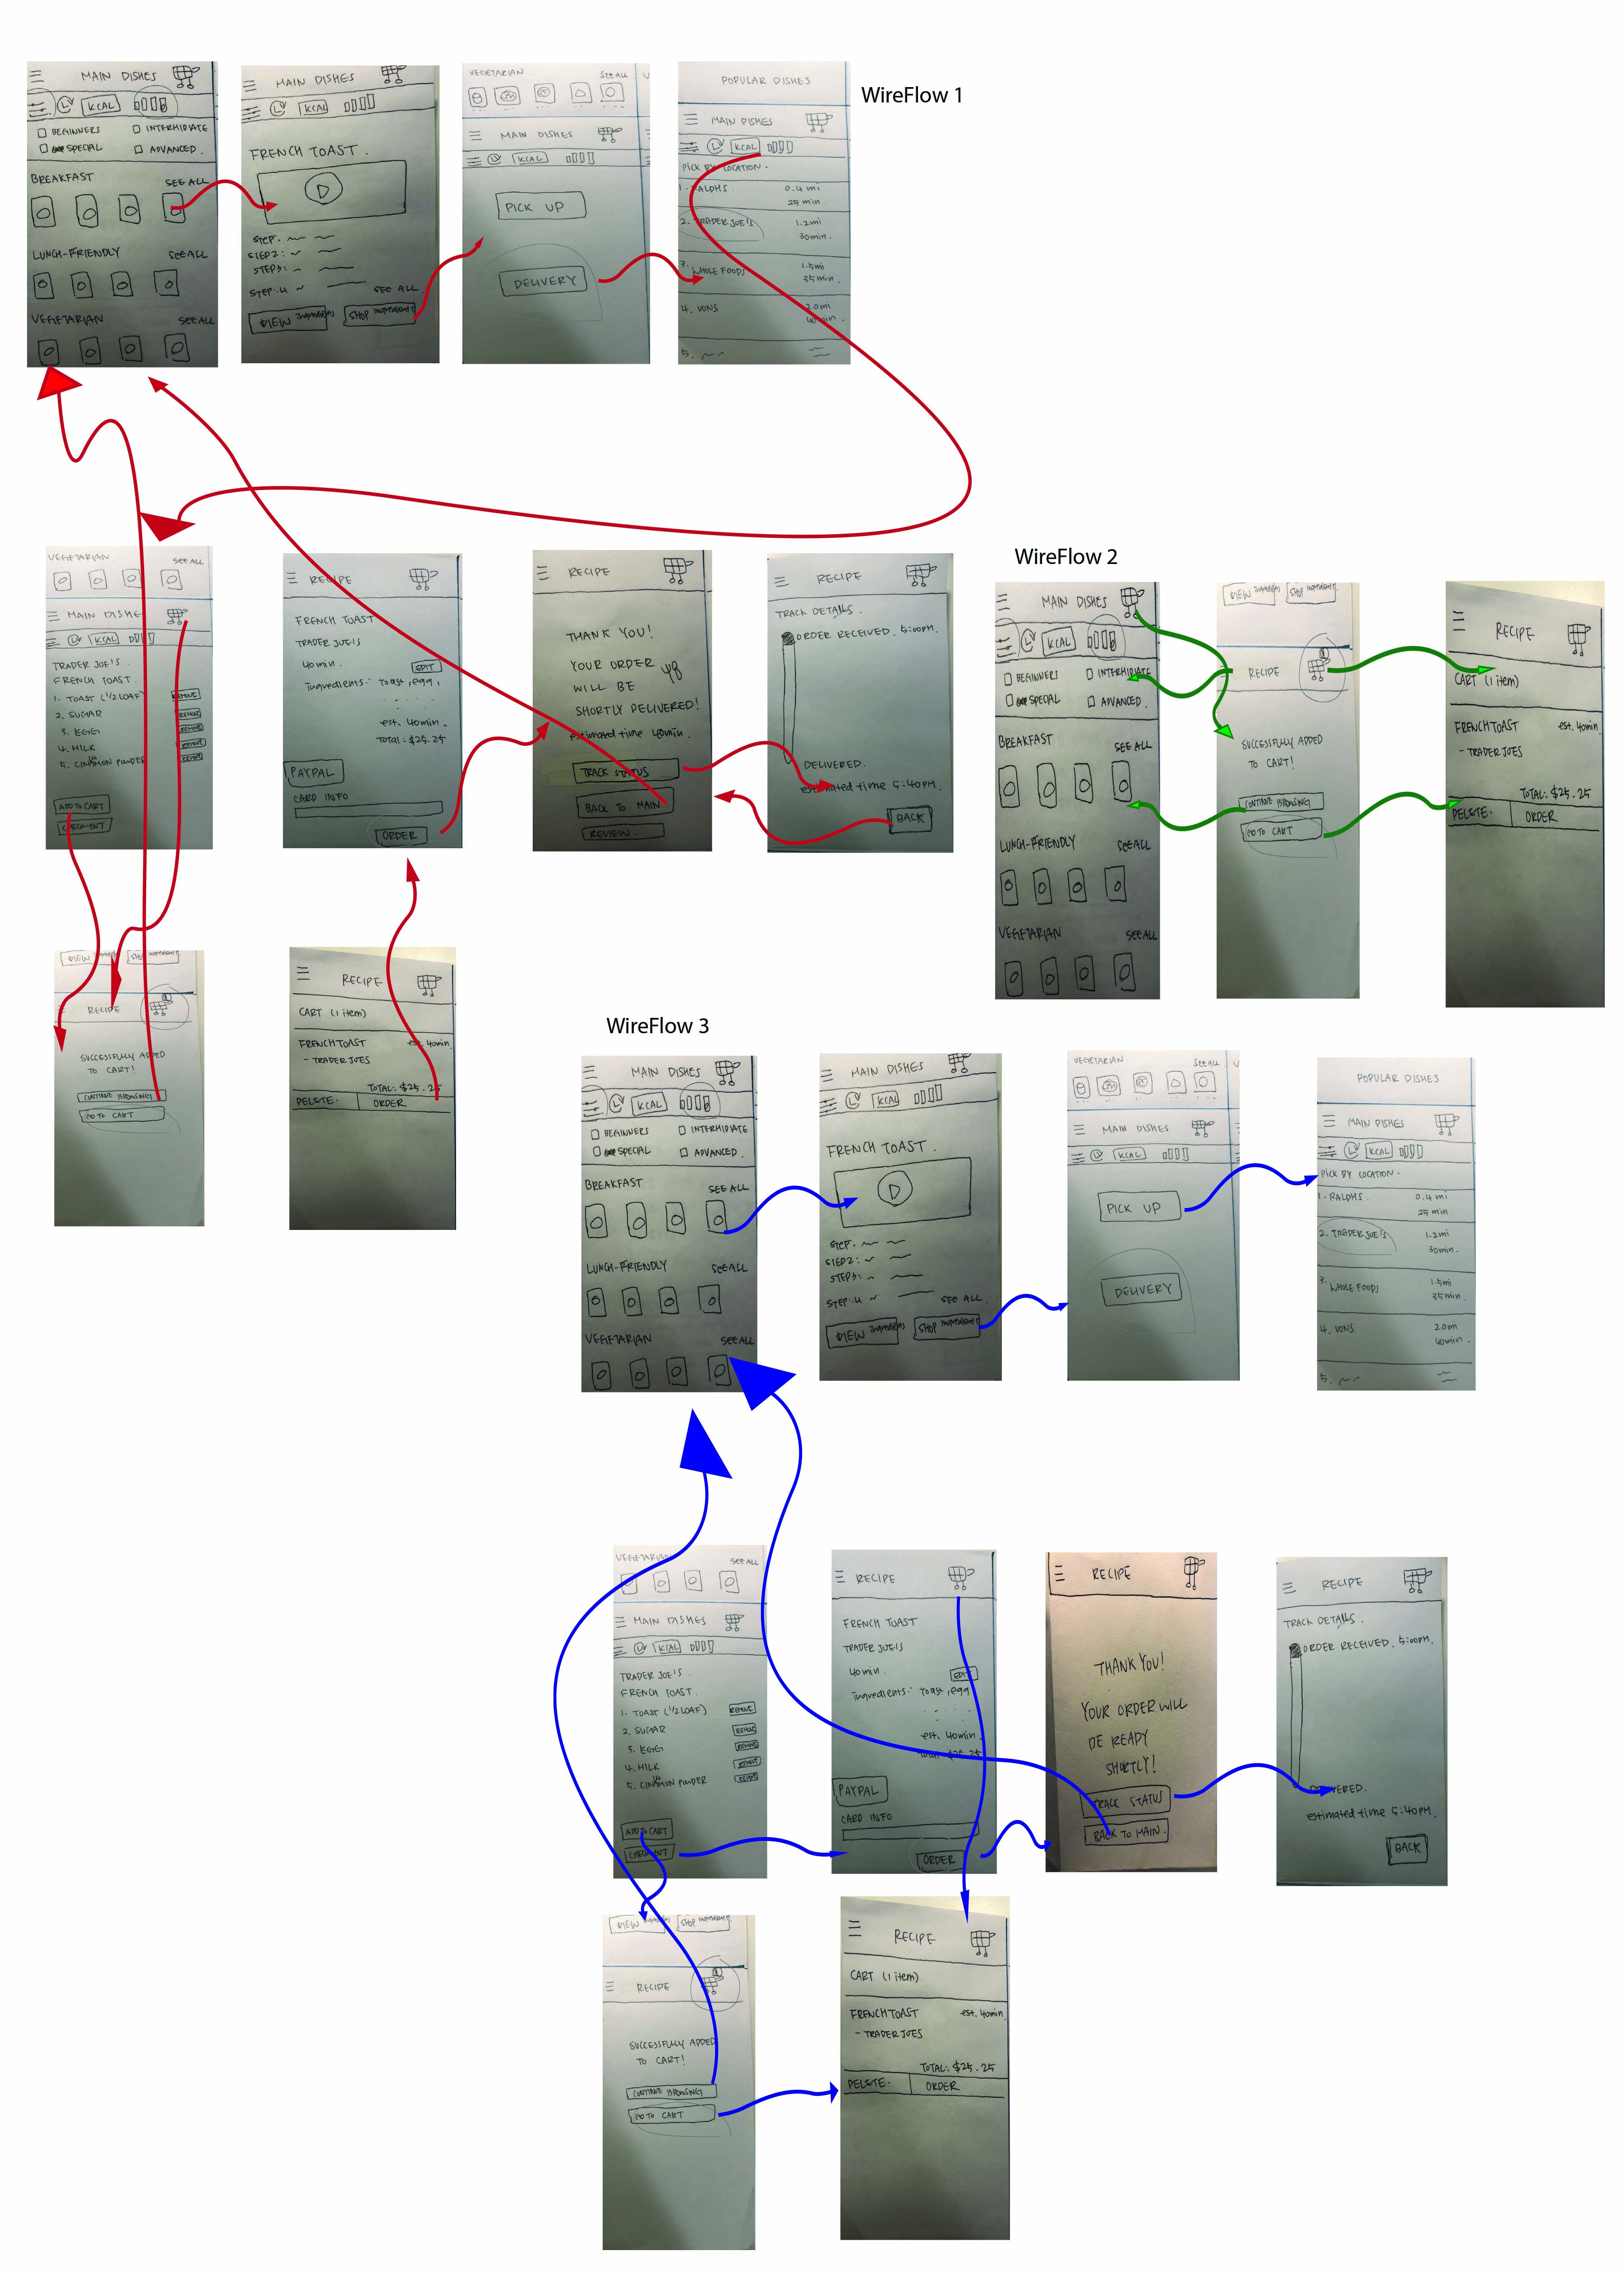 WireFlow 1
MAIN DISHES
KCAL
BEGINNERS INTERMIDIATE
SPECIAL ADVANCED.
BREAKFAST SEE ALL
LUNCH-FRIENDLY SEE ALL
VEGETARIAN SEE ALL
MAIN DISHES
KCAL
FRENCH TOAST.
STEP.
STEP2:
STEP3:
STEP:4 SEE ALL.
VIEW ingredients SHOP ingredients
VEGETARIAN SEE ALL
MAIN DISHES
KCAL
PICK UP
DELIVERY
POPULAR DISHES
MAIN DISHES
KCAL
PICK BY LOCATION.
1. RALPHS. 0.4 mi
25 min.
2. TRADER JOE'S 1.2 mi
30 min.
3. WHOLE FOODS 1.5 mi
35 min.
4. VONS 2.0 mi
40 min.
5.
VEGETARIAN SEE ALL
MAIN DISHES
KCAL
TRADER JOE'S.
FRENCH TOAST.
1. TOAST (1/2 LOAF) REMOVE
2. SUGAR REMOVE
3. EGG REMOVE
4. MILK REMOVE
5. CINAMON POWDER REMOVE
ADD TO CART
CHECK OUT
RECIPE
FRENCH TOAST
TRADER JOE'S
40 min. EDIT
ingredients: Toast, egg,
est. 40 min.
Total: $25.25
PAYPAL
CARD INFO
ORDER
RECIPE
THANK YOU!
YOUR ORDER
WILL BE
SHORTLY DELIVERED!
estimated time 40min.
TRACK STATUS
BACK TO MAIN.
REVIEW.
RECIPE
TRACK DETAILS.
ORDER RECEIVED. 5:00PM.
DELIVERED.
estimated time 5:40PM.
BACK
VIEW ingredients SHOP ingredients
RECIPE
SUCCESSFULLY ADDED
TO CART!
CONTINUE BROWSING
GO TO CART
RECIPE
CART (1 item)
FRENCH TOAST est. 40min.
- TRADER JOES
TOTAL: $25.25
DELETE. ORDER
WireFlow 2
MAIN DISHES
KCAL
BEGINNERS INTERMIDIATE
SPECIAL ADVANCED.
BREAKFAST SEE ALL
LUNCH-FRIENDLY SEE ALL
VEGETARIAN SEE ALL
VIEW ingredients SHOP ingredients
RECIPE
SUCCESSFULLY ADDED
TO CART!
CONTINUE BROWSING
GO TO CART
RECIPE
CART (1 item)
FRENCH TOAST est. 40min.
- TRADER JOES
TOTAL: $25.25
DELETE. ORDER
WireFlow 3
MAIN DISHES
KCAL
BEGINNERS INTERMIDIATE
SPECIAL ADVANCED.
BREAKFAST SEE ALL
LUNCH-FRIENDLY SEE ALL
VEGETARIAN SEE ALL
MAIN DISHES
KCAL
FRENCH TOAST.
STEP.
STEP2:
STEP3:
STEP:4 SEE ALL.
VIEW ingredients SHOP ingredients
VEGETARIAN SEE ALL
MAIN DISHES
KCAL
PICK UP
DELIVERY
POPULAR DISHES
MAIN DISHES
KCAL
PICK BY LOCATION.
1. RALPHS. 0.4 mi
25 min.
2. TRADER JOE'S 1.2 mi
30 min.
3. WHOLE FOODS 1.5 mi
35 min.
4. VONS 2.0 mi
40 min.
5.
VEGETARIAN SEE ALL
MAIN DISHES
KCAL
TRADER JOE'S.
FRENCH TOAST.
1. TOAST (1/2 LOAF) REMOVE
2. SUGAR REMOVE
3. EGG REMOVE
4. MILK REMOVE
5. CINAMON POWDER REMOVE
ADD TO CART
CHECK OUT
RECIPE
FRENCH TOAST
TRADER JOE'S
40 min. EDIT
ingredients: Toast, egg
est. 40 min.
Total: $25.25
PAYPAL
CARD INFO
ORDER
RECIPE
THANK YOU!
YOUR ORDER WILL
BE READY
SHORTLY!
TRACK STATUS
BACK TO MAIN.
RECIPE
TRACK DETAILS.
ORDER RECEIVED. 5:00PM.
DELIVERED.
estimated time 5:40PM.
BACK
VIEW ingredients SHOP ingredients
RECIPE
SUCCESSFULLY ADDED
TO CART!
CONTINUE BROWSING
GO TO CART
RECIPE
CART (1 item)
FRENCH TOAST est. 40min.
- TRADER JOES
TOTAL: $25.25
DELETE. ORDER